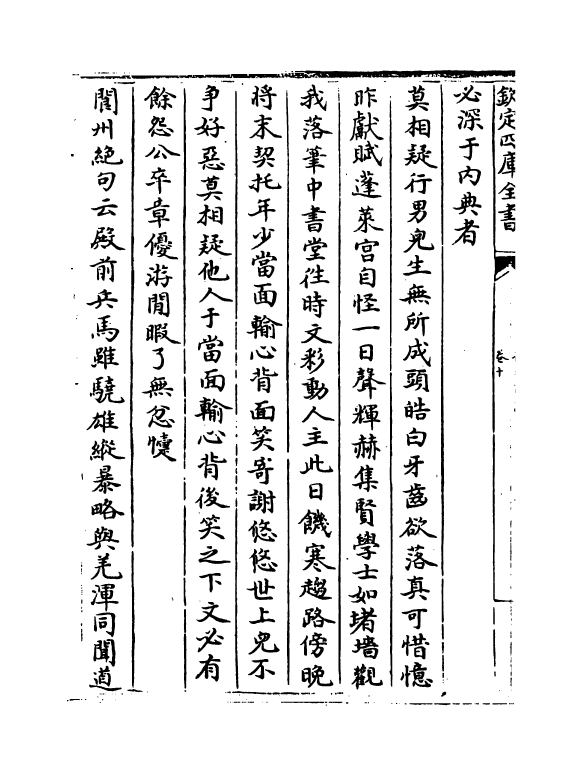 欽定四庫全書
卷十
必深于內典者
莫相疑行男兒生無所成頭皓白牙齒欲落真可惜憶
昨獻賦蓬萊宮自怪一日聲輝赫集賢學士如堵墻觀
我落筆中書堂往時文彩動人主此日饑寒趨路傍晚
將末契托年少當面輸心背面笑寄謝悠悠世上兒不
爭好惡莫相疑他人于當面輸心背後笑之下文必有
餘怨公卒章優游閒暇了無忿懥
閬州絕句云殿前兵馬雖驍雄縱暴略與羌渾同聞道